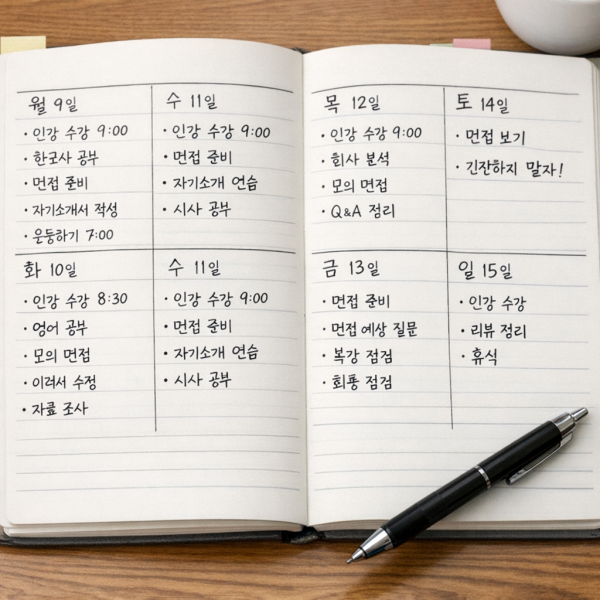 월 9일
· 인강 수강 9:00
· 한굿사 공부
· 면접 준비
· 자기소개서 작성
· 운둥하기 7:00
화 10일
· 인강 수강 8:30
· 영어 공부
· 모의 면접
· 이려서 수정
· 자료 조사
수 11일
· 인강 수강 9:00
· 면접 준비
· 자기소개 연습
· 시사 공부
수 11일
· 인강 수강 9:00
· 면접 준비
· 자기소개 연습
· 시사 공부
목 12일
· 인강 수강 9:00
· 회사 분석
· 모의 면접
· Q&A 정리
금 13일
· 면접 준비
· 면접 예상 질문
· 복강 점검
· 점검
토 14일
· 면접 보기
· 긴잔하지 말자!
일 15일
· 인강 수강
· 리뷰 정리
· 휴식